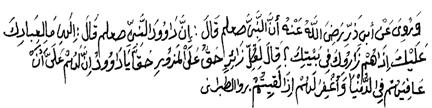 وروي عن أبي ذر رضي الله عنه أن النبي صعلم قال : إن داوود النبي صعلم قال : إلهي ما لعبادك
عليك إذا هم زاروك في بيتك ؟ قال لكل زائر حق على المزور حقا يا داوود إن لهم علي أن
عافيتهم في الدنيا وأغفر لهم إذا لقيتهم . رواه الطبراني